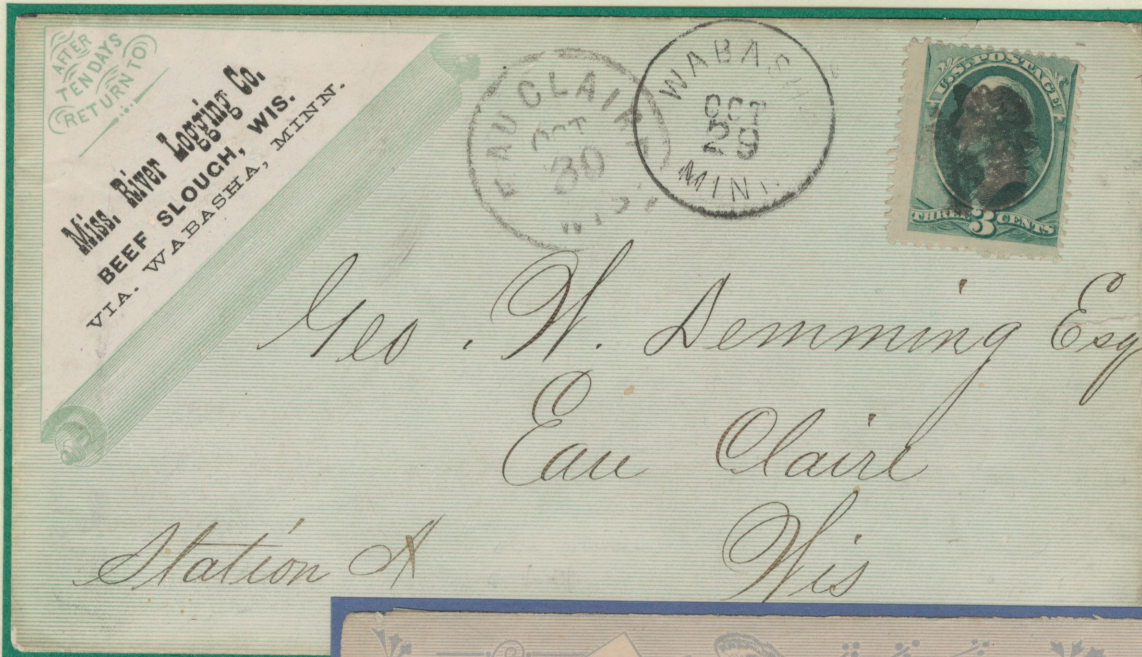 AFTER
TEN DAYS
RETURN TO
Miss. River Logging Co.
BEEF SLOUGH, WIS.
VIA. WABASHA, MINN.
EAU CLAIRE
OCT
30
WIS
WABASHA
OCT
29
MINN.
U.S. POSTAGE
THREE 3 CENTS
Geo. W. Demming Esq
Eau Claire
Wis
Station A